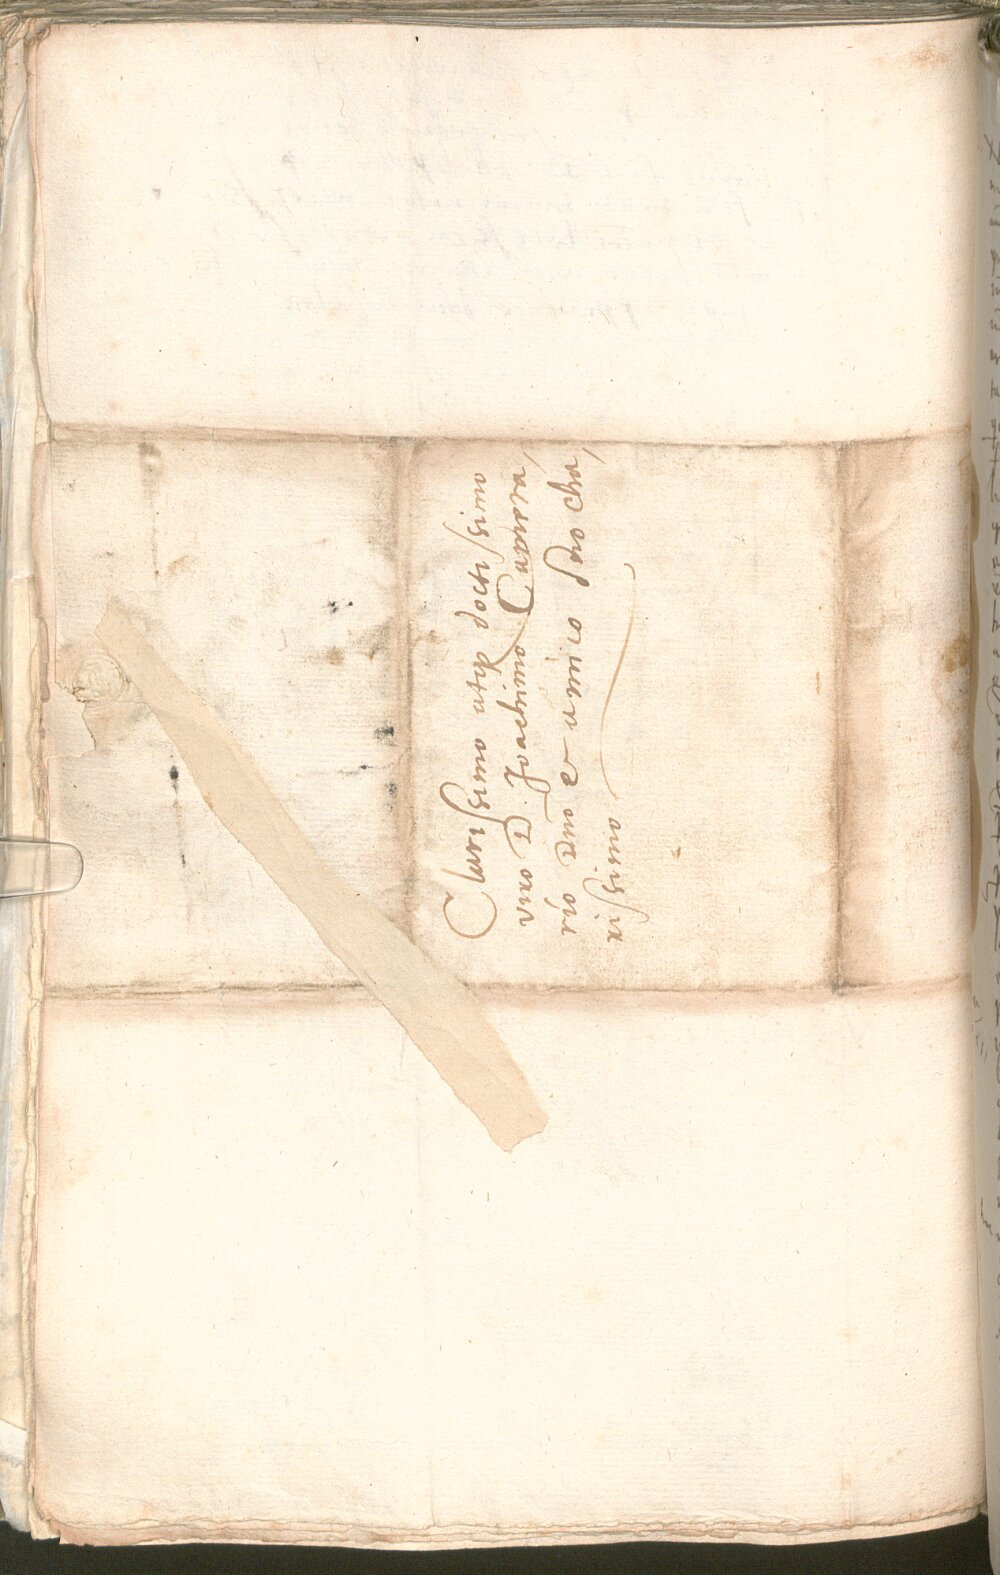 Clarissimo atq; doctissimo
viro D. Joachimo Camera,
rio dno et amico suo cha,
rissimo